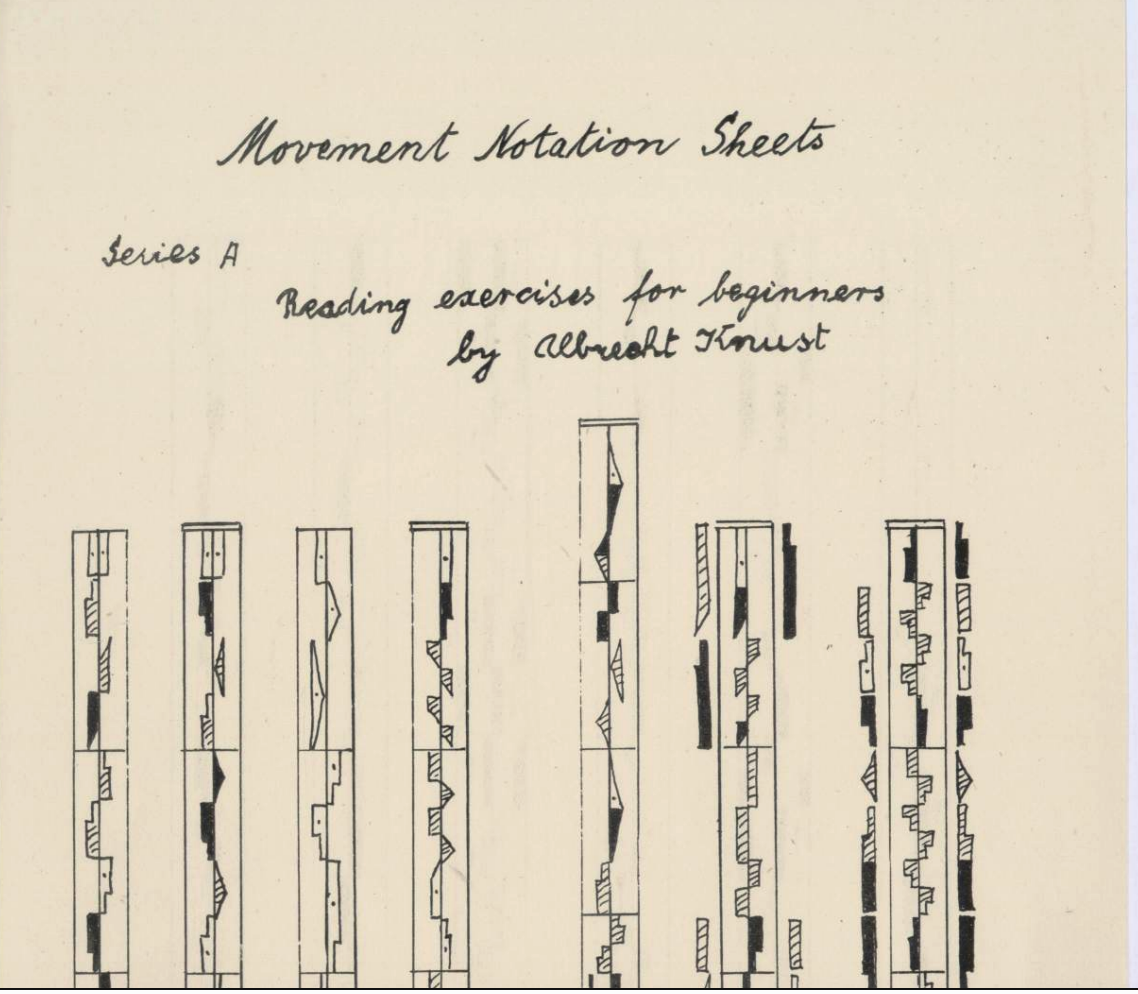 Movement Notation Sheets
Series A
Reading exercises for beginners
by Albrecht Knust